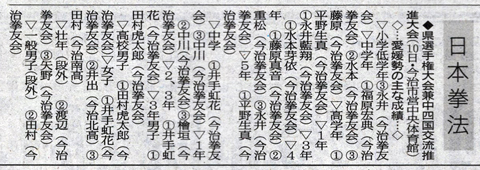 日本拳法
◆県選手権大会兼中四国交流推
進大会(10日・今治市営中央体育館)
◇…愛媛勢の主な成績…◇
▽小学低2年③永井(今治拳友
会)▽中学年①福原宏典(今治
拳友会)②水本▽高学年①
藤原(今治拳友会)▽1年
平野生真(今治拳友会)▽3年
①永井藍翔(今治拳友会)
①水本芽依(今治拳友会)▽4
年①藤原真音(今治拳友会)②
重松(今治拳友会)③永井(今治
拳友会)▽5年①平野生真(今
治拳友会)
▽中学①井手虹花(今治拳友
会)③中川(今治拳友会)▽1年
②中川(今治拳友会)③檜垣(今
治拳友会)▽2、3年①井手虹
花(今治拳友会)▽3年男子①
田村虎太郎(今治拳友会)
▽高校男子①田村虎太郎(今
治拳友会)▽女子①井手虹花(今
治拳友会)②井出(今治北高)③
田村(今治明高)
▽壮年(段外)②渡辺(今治
拳友会)③矢野(今治拳友会)
▽一般男子(段外)②田村(今
治拳友会)